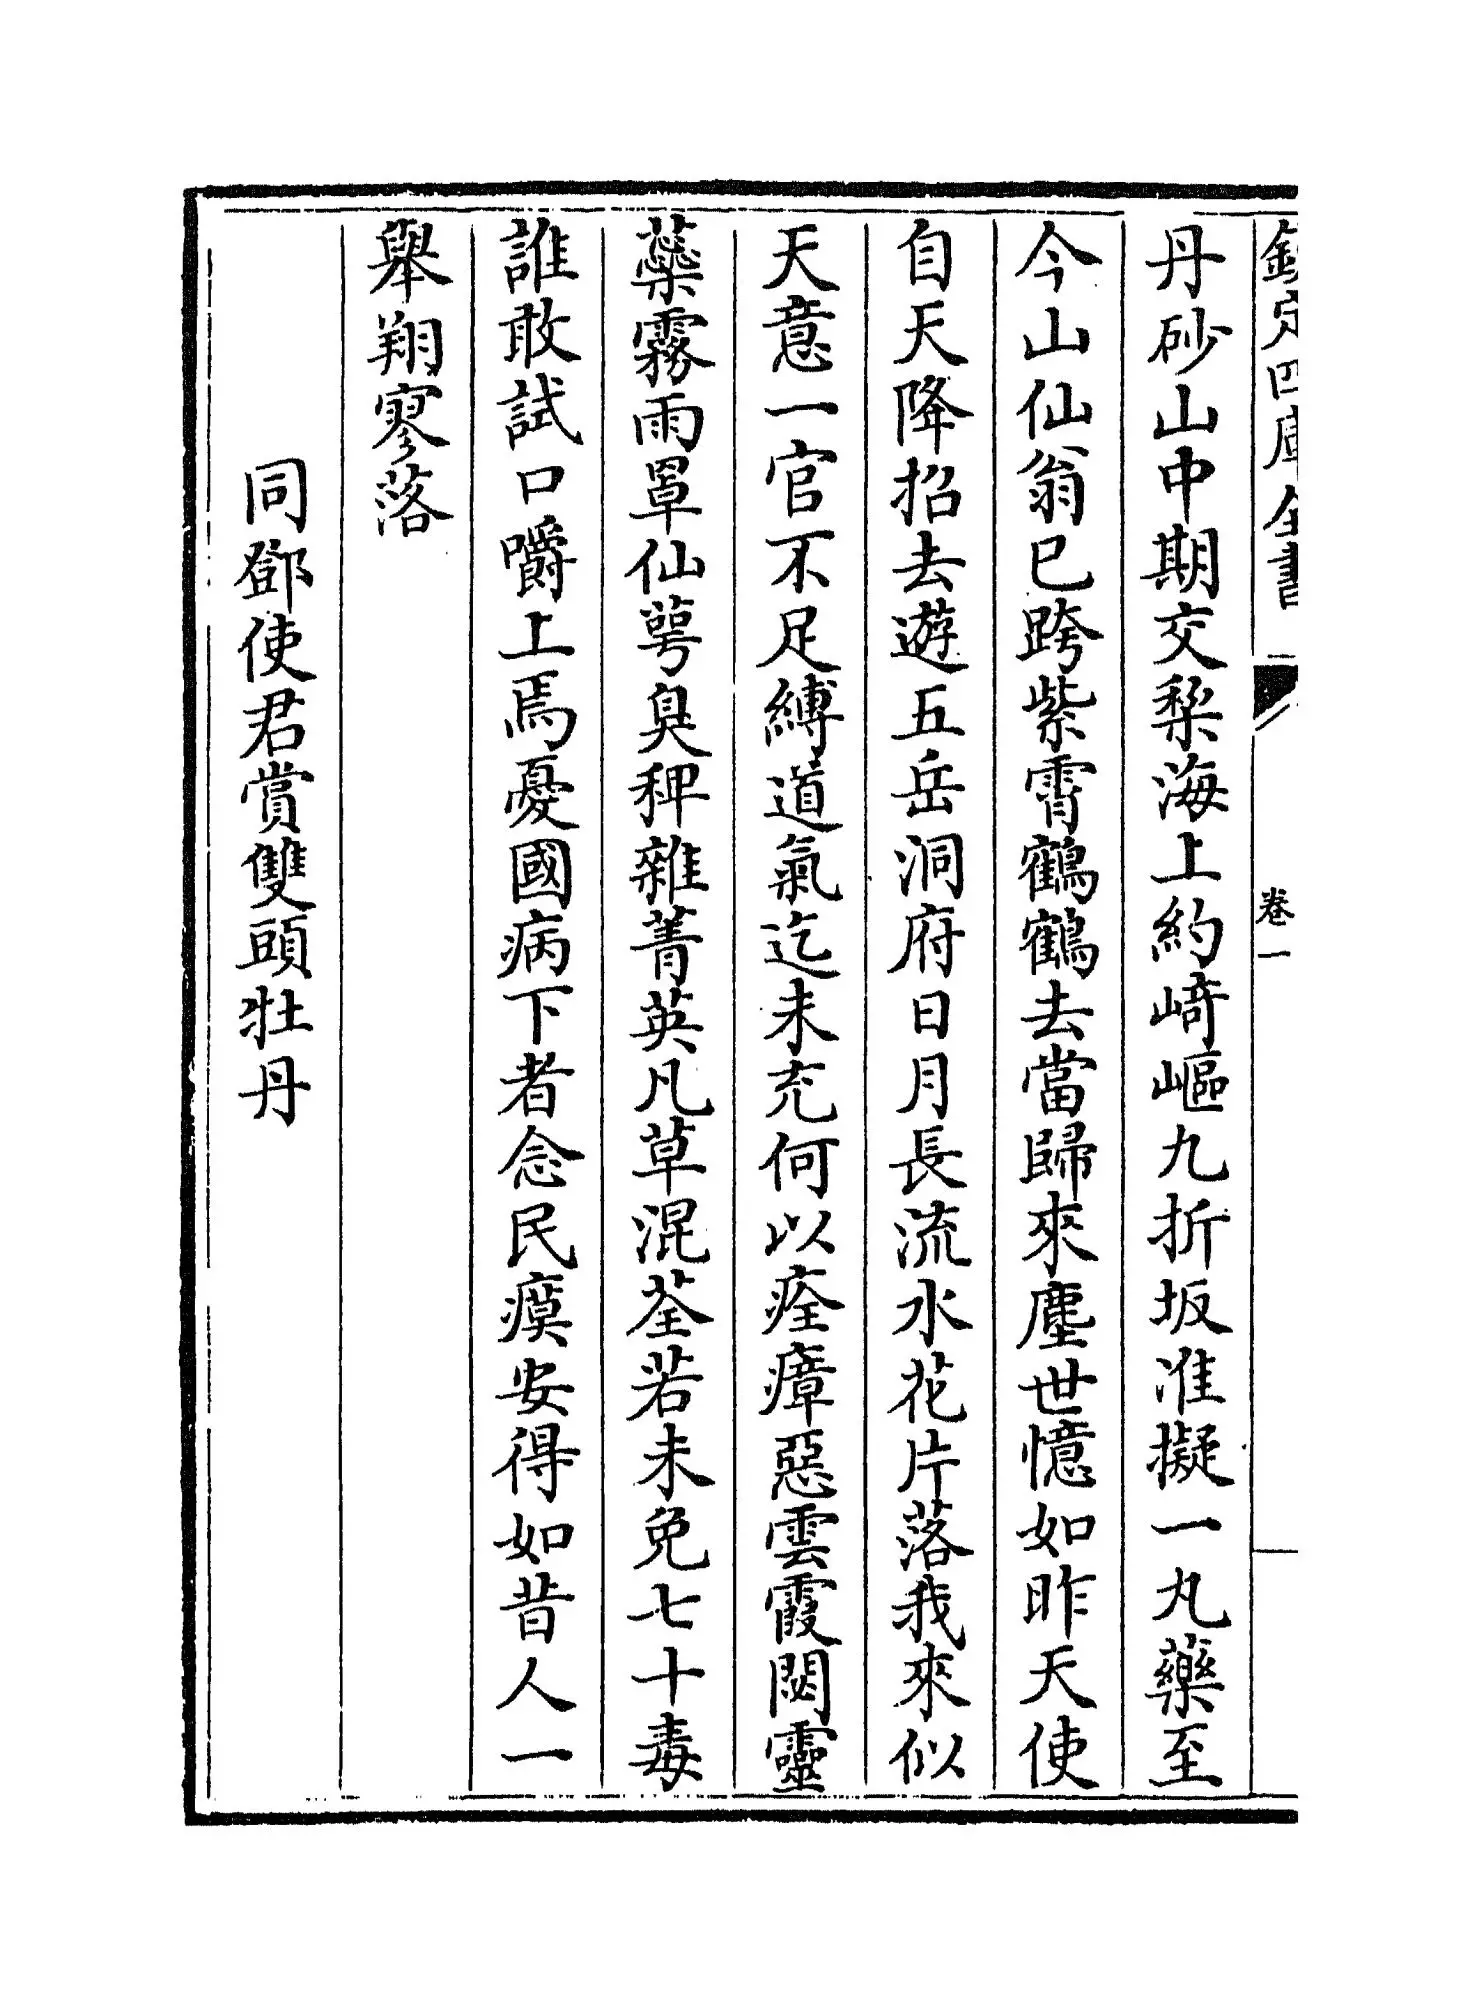 欽定四庫全書
卷一
丹砂山中期交棃海上約崎嶇九折坂准擬一丸藥至
今山仙翁已跨紫霄鶴鶴去當歸來塵世憶如昨天使
自天降招去遊五岳洞府日月長流水花片落我來似
天意一官不足縛道氣迄未充何以痊瘴惡雲霞閟靈
蘂霧雨罩仙萼臭稗雜菁英凡草混荃若未免七十毒
誰敢試口嚼上焉憂國病下者念民瘼安得如昔人一
舉翔寥落
同鄧使君賞雙頭牡丹